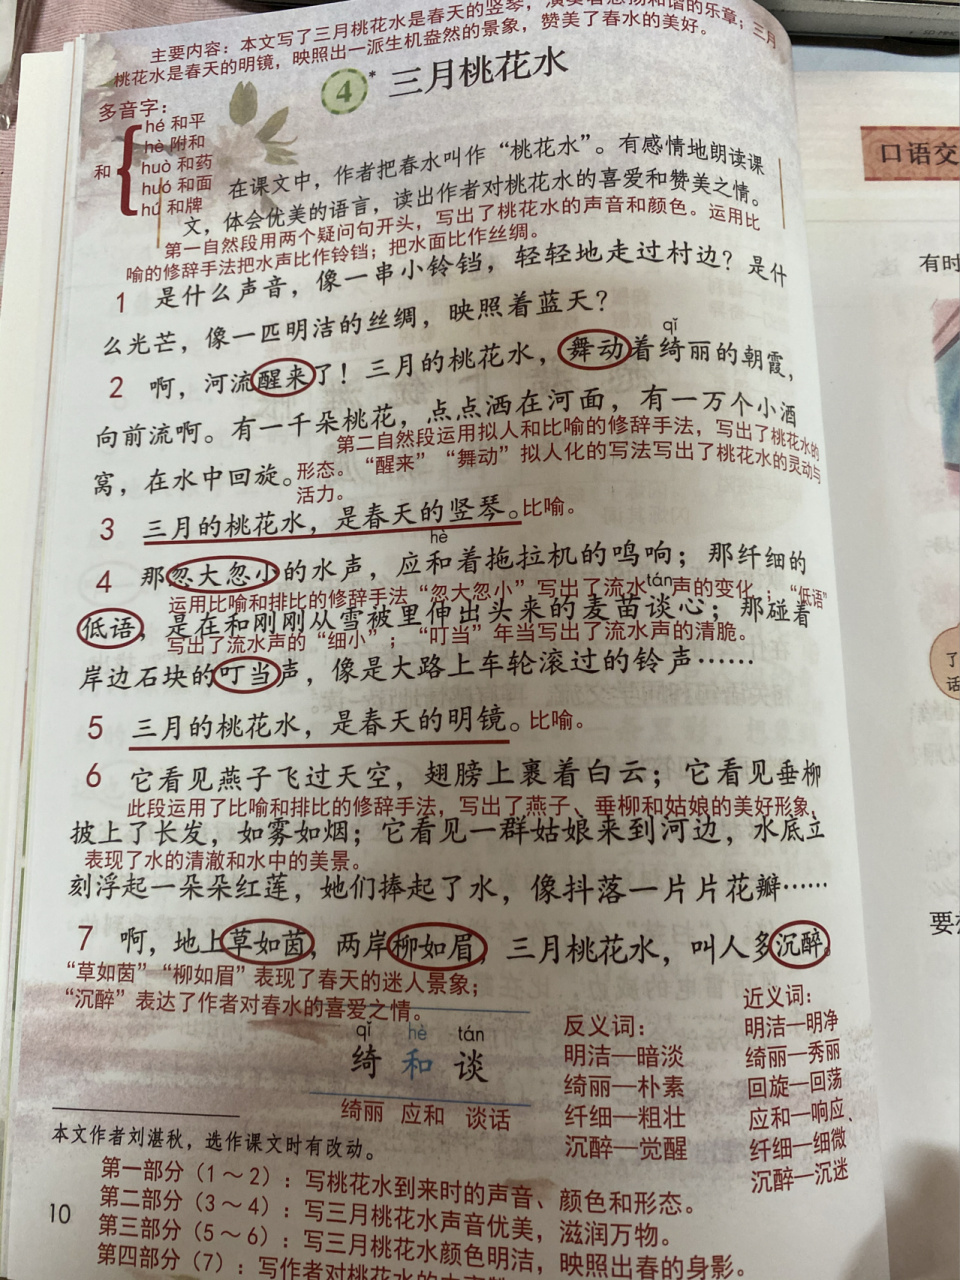 主要内容：本文写了三月桃花水是春天的竖琴，演奏着悠扬和谐的乐章；三月
桃花水是春天的明镜，映照出一派生机盎然的景象，赞美了春水的美好。
4* 三月桃花水
多音字：
和
hé 和平
hè 附和
huò 和药
huó 和面
hú 和牌
在课文中，作者把春水叫作“桃花水”。有感情地朗读课
文，体会优美的语言，读出作者对桃花水的喜爱和赞美之情。
第一自然段用两个疑问句开头，写出了桃花水的声音和颜色。运用比
喻的修辞手法把水声比作铃铛；把水面比作丝绸。
1 是什么声音，像一串小铃铛，轻轻地走过村边？是什
么光芒，像一匹明洁的丝绸，映照着蓝天？
qǐ
2 啊，河流醒来了！三月的桃花水，舞动着绮丽的朝霞，
向前流啊。有一千朵桃花，点点洒在河面，有一万个小酒
第二自然段运用拟人和比喻的修辞手法，写出了桃花水的
窝，在水中回旋。
形态。“醒来”“舞动”拟人化的写法写出了桃花水的灵动与
活力。
3 三月的桃花水，是春天的竖琴。比喻。
hè
4 那忽大忽小的水声，应和着拖拉机的鸣响；那纤细的
tán
运用比喻和排比的修辞手法“忽大忽小”写出了流水声的变化；“低语”
低语，是在和刚刚从雪被里伸出头来的麦苗谈心；那碰着
写出了流水声的“细小”；“叮当”年当写出了流水声的清脆。
岸边石块的叮当声，像是大路上车轮滚过的铃声……
5 三月的桃花水，是春天的明镜。比喻。
6 它看见燕子飞过天空，翅膀上裹着白云；它看见垂柳
此段运用了比喻和排比的修辞手法，写出了燕子、垂柳和姑娘的美好形象，
披上了长发，如雾如烟；它看见一群姑娘来到河边，水底立
表现了水的清澈和水中的美景。
刻浮起一朵朵红莲，她们捧起了水，像抖落一片片花瓣……
7 啊，地上草如茵，两岸柳如眉，三月桃花水，叫人多沉醉。
“草如茵”“柳如眉”表现了春天的迷人景象；
“沉醉”表达了作者对春水的喜爱之情。
qǐ hè tán
绮 和 谈
绮丽 应和 谈话
反义词：
明洁—暗淡
绮丽—朴素
纤细—粗壮
沉醉—觉醒
近义词：
明洁—明净
绮丽—秀丽
回旋—回荡
应和—响应
纤细—细微
沉醉—沉迷
本文作者刘湛秋，选作课文时有改动。
第一部分（1～2）：写桃花水到来时的声音、颜色和形态。
第二部分（3～4）：写三月桃花水声音优美，滋润万物。
第三部分（5～6）：写三月桃花水颜色明洁，映照出春的身影。
第四部分（7）：写作者对桃花水的
10
口语交
有时
了
话
要想